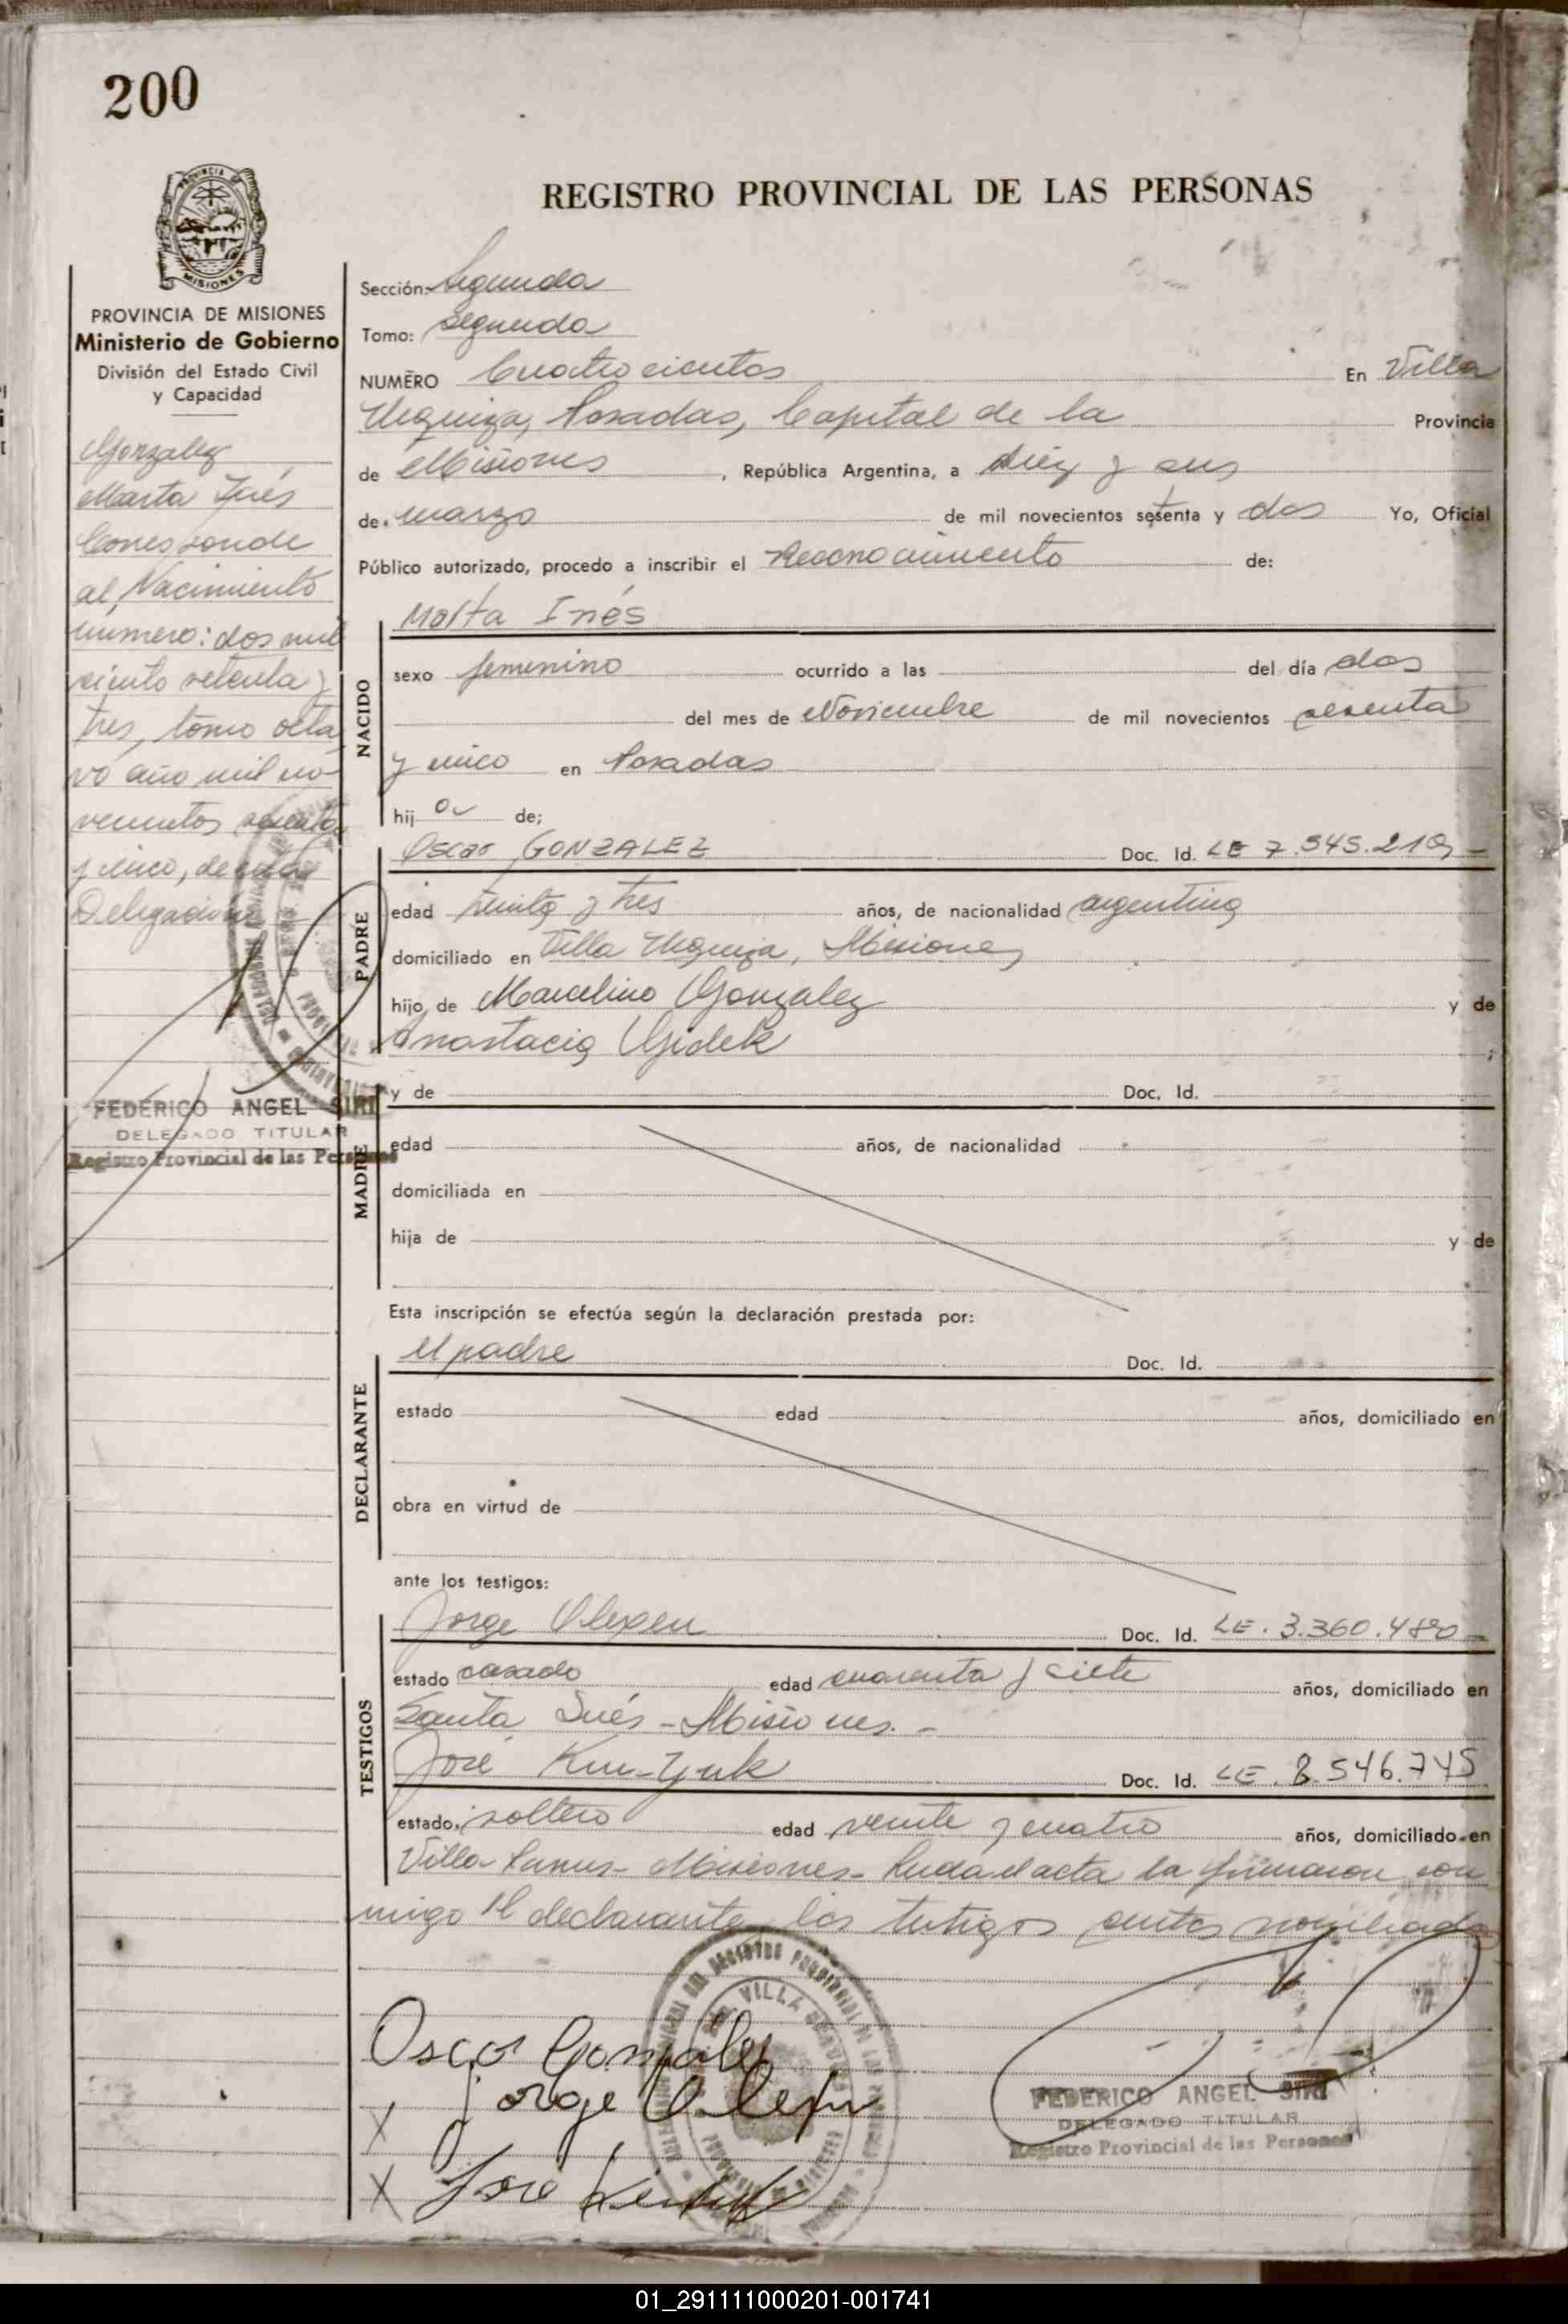 200
REGISTRO PROVINCIAL DE LAS PERSONAS
PROVINCIA DE MISIONES
Ministerio de Gobierno
División del Estado Civil
y Capacidad
Gonzalez
Marta Inés
Corresponde
al Nacimiento
número: dos mil
ciento setenta y
tres, tomo octa
vo año mil no
vecientos sesenta
y cinco, de esta
Delegación
FEDERICO ANGEL SIRI
DELEGADO TITULAR
Registro Provincial de las Personas
Sección: Segunda
Tomo: Segundo
NUMERO Cuatrocientos En Villa
Urquiza, Posadas, Capital de la Provincia
de Misiones, República Argentina, a diez y seis
de marzo de mil novecientos setenta y dos Yo, Oficial
Público autorizado, procedo a inscribir el Reconocimiento de:
NACIDO
Marta Inés
sexo femenino ocurrido a las del día dos
del mes de Noviembre de mil novecientos sesenta
y cinco en Posadas
hij a de;
PADRE
Oscar GONZALEZ Doc. Id. LE 7.545.219
edad treinta y tres años, de nacionalidad argentina
domiciliado en Villa Urquiza, Misiones
hijo de Marcelino Gonzalez y de
Anastacia Gidek ;
MADRE
y de Doc. Id.
edad años, de nacionalidad
domiciliada en
hija de y de
Esta inscripción se efectúa según la declaración prestada por:
DECLARANTE
El padre Doc. Id.
estado edad años, domiciliado en
obra en virtud de
ante los testigos:
TESTIGOS
Jorge Olexen Doc. Id. LE. 3.360.480
estado casado edad cuarenta y siete años, domiciliado en
Santa Inés - Misiones. -
José Doc. Id. LE. 8.546.745
estado soltero edad veinte y cuatro años, domiciliado en
Villa Lanus - Misiones - Leida el acta la firmaron con
migo el declarante los testigos antes nombrados
Oscar Gonzalez
x Jorge
x José
FEDERICO ANGEL SIRI
DELEGADO TITULAR
Registro Provincial de las Personas
01_291111000201-001741